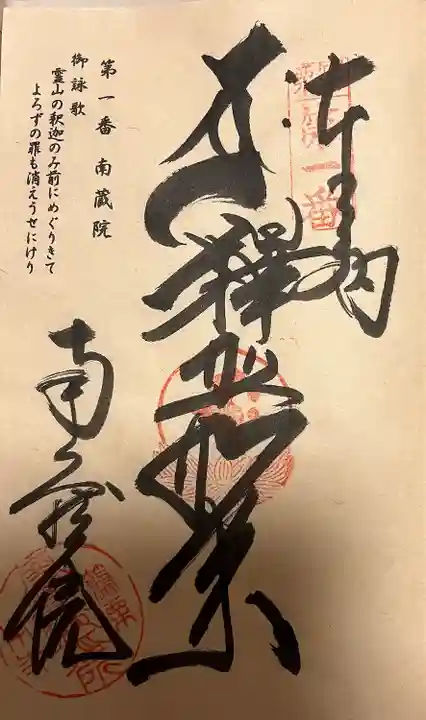 奉納
一番
釋迦如来
第一番 南蔵院
御詠歌
霊山の釈迦のみ前にめぐりきて
よろずの罪も消えうせにけり
南蔵院